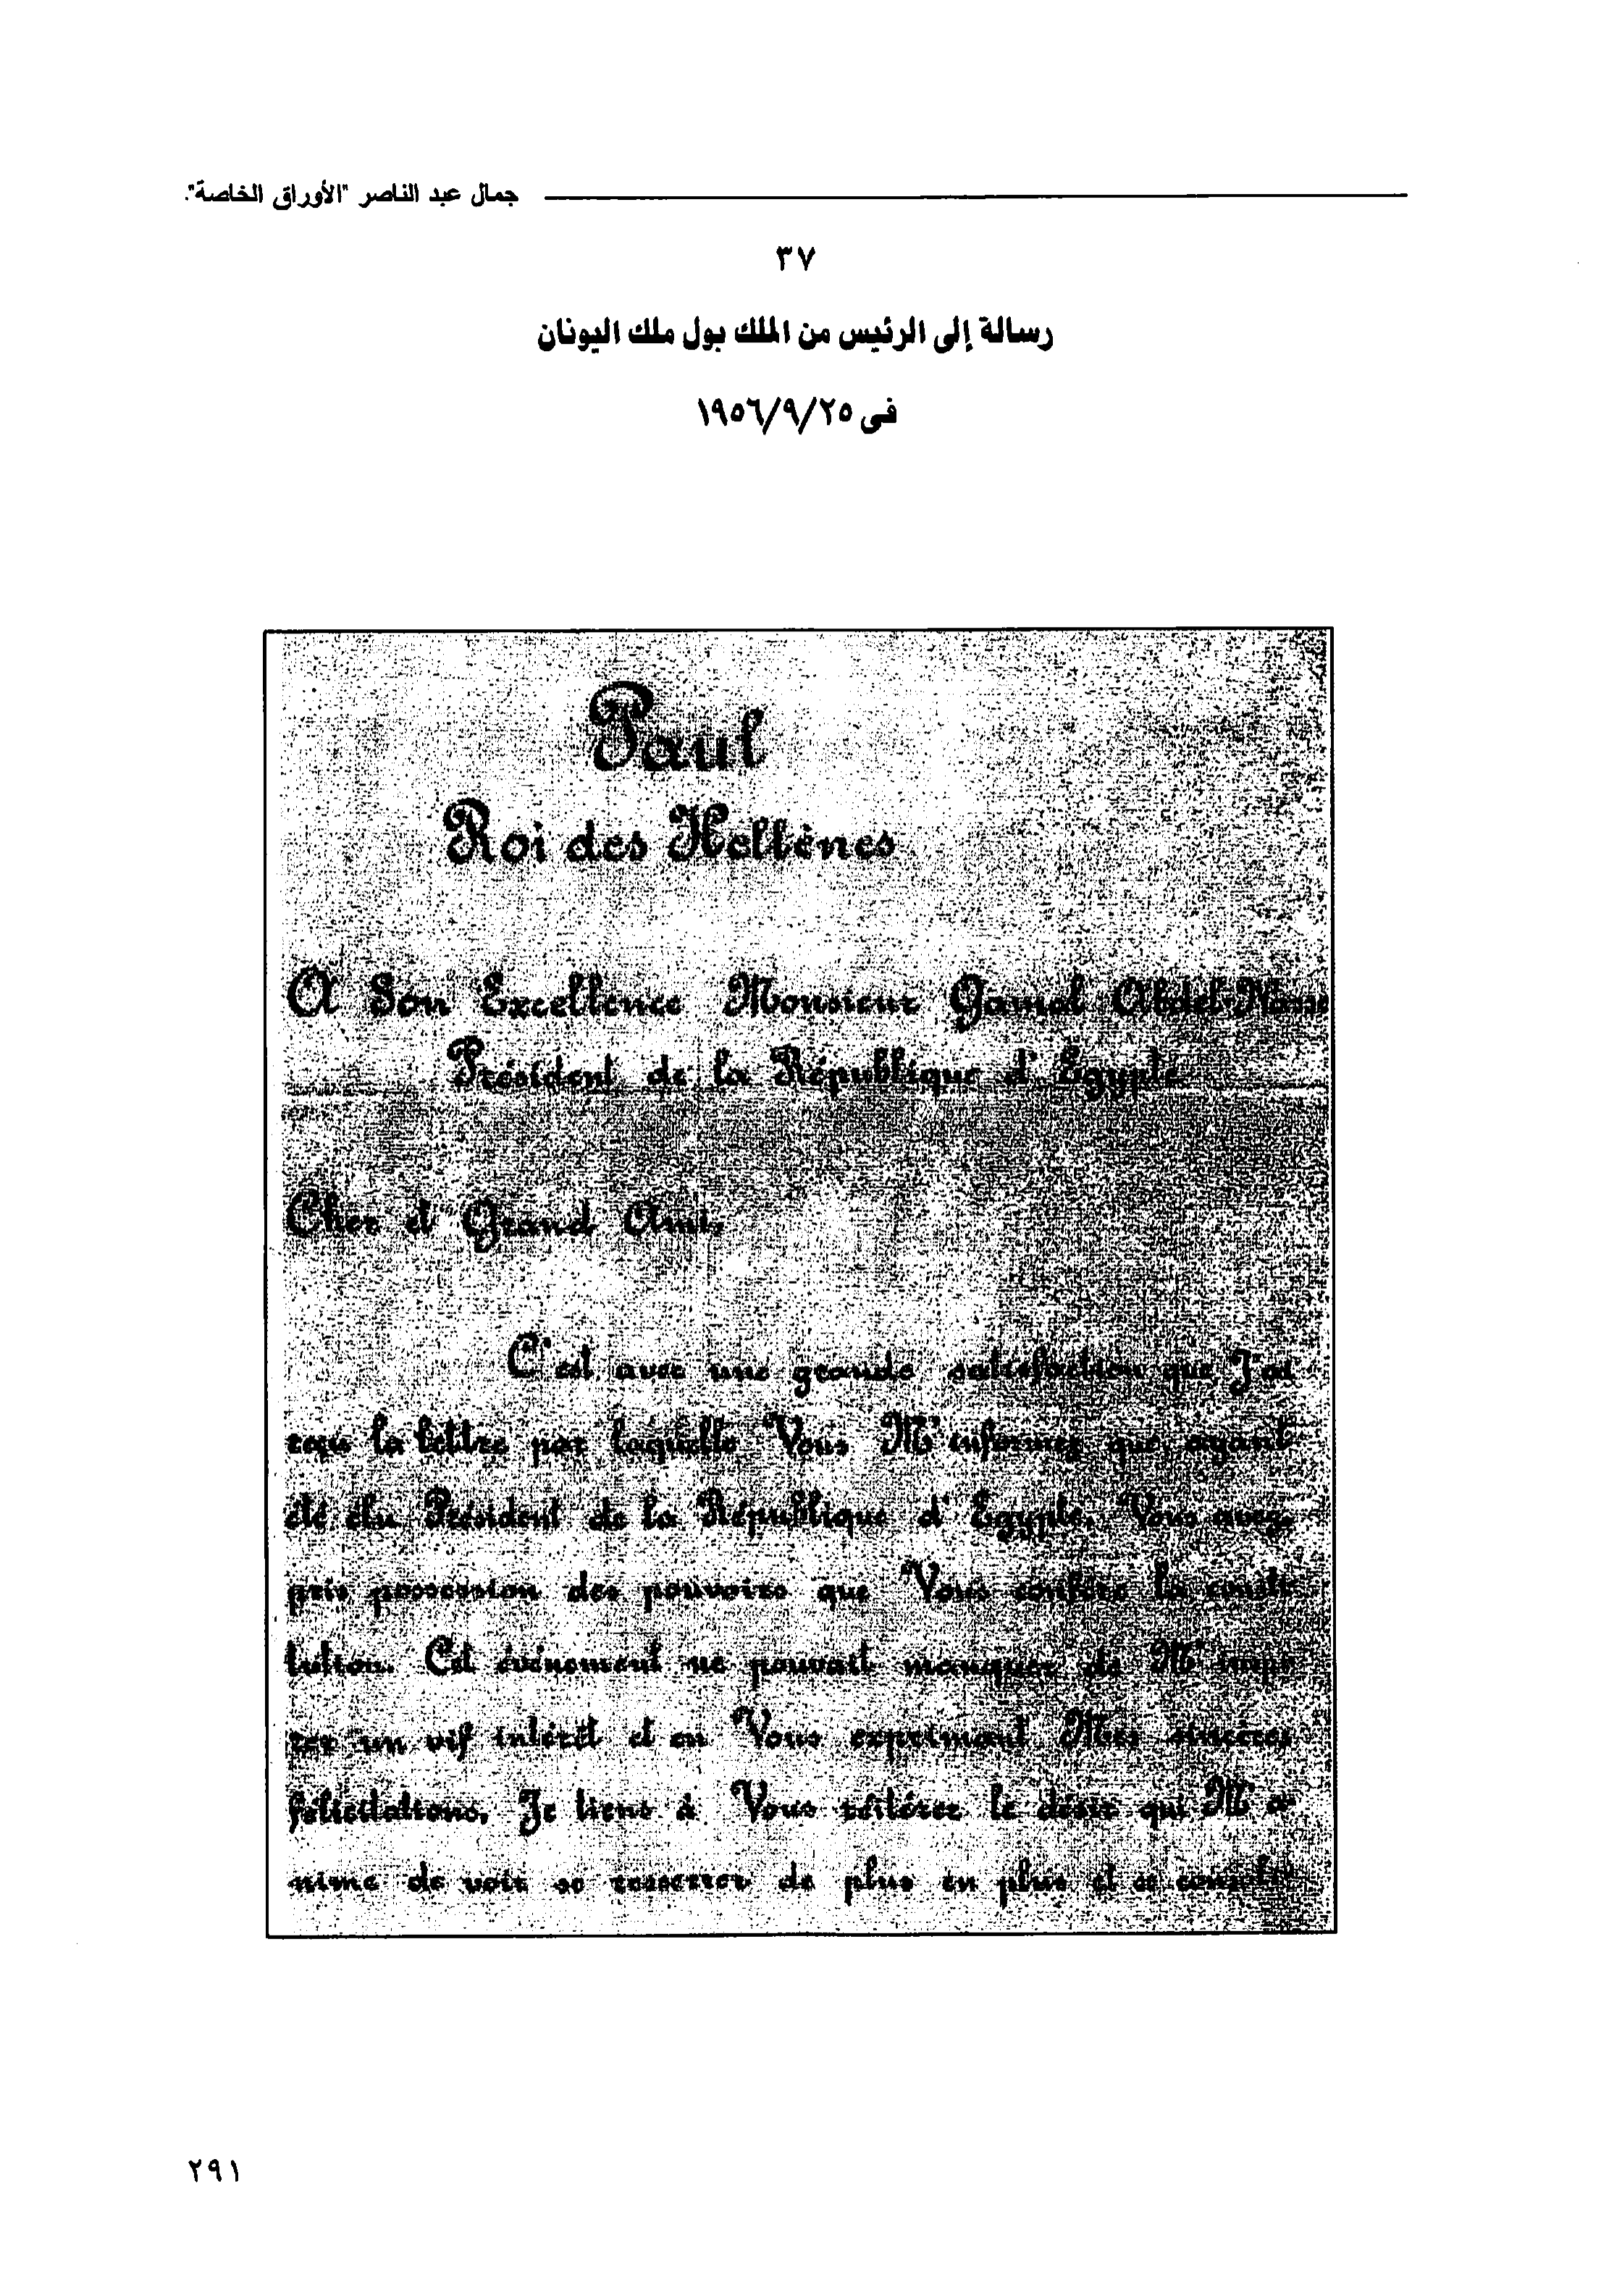 جمال عبد الناصر "الأوراق الخاصة".
٣٧
رسالة إلى الرئيس من الملك بول ملك اليونان
فى ١٩٥٦/٩/٢٥
Paul
Roi des Hellènes
A Son Excellence Monsieur Gamal Abdel-Nasse
Président de la République d'Egypte
Cher et Grand Ami,
C'est avec une grande satisfaction que J'ai
reçu la lettre par laquelle Vous M'informez que, ayant
été élu Président de la République d'Egypte, Vous avez
pris possession des pouvoirs que Vous confère la consti
tution. Cet événement ne pouvait manquer de M'inspi
rer un vif intérêt et en Vous exprimant Mes sincères
félicitations, Je tiens à Vous réitérer le désir qui M'a
nime de voir se resserrer de plus en plus et se consoli
٢٩١